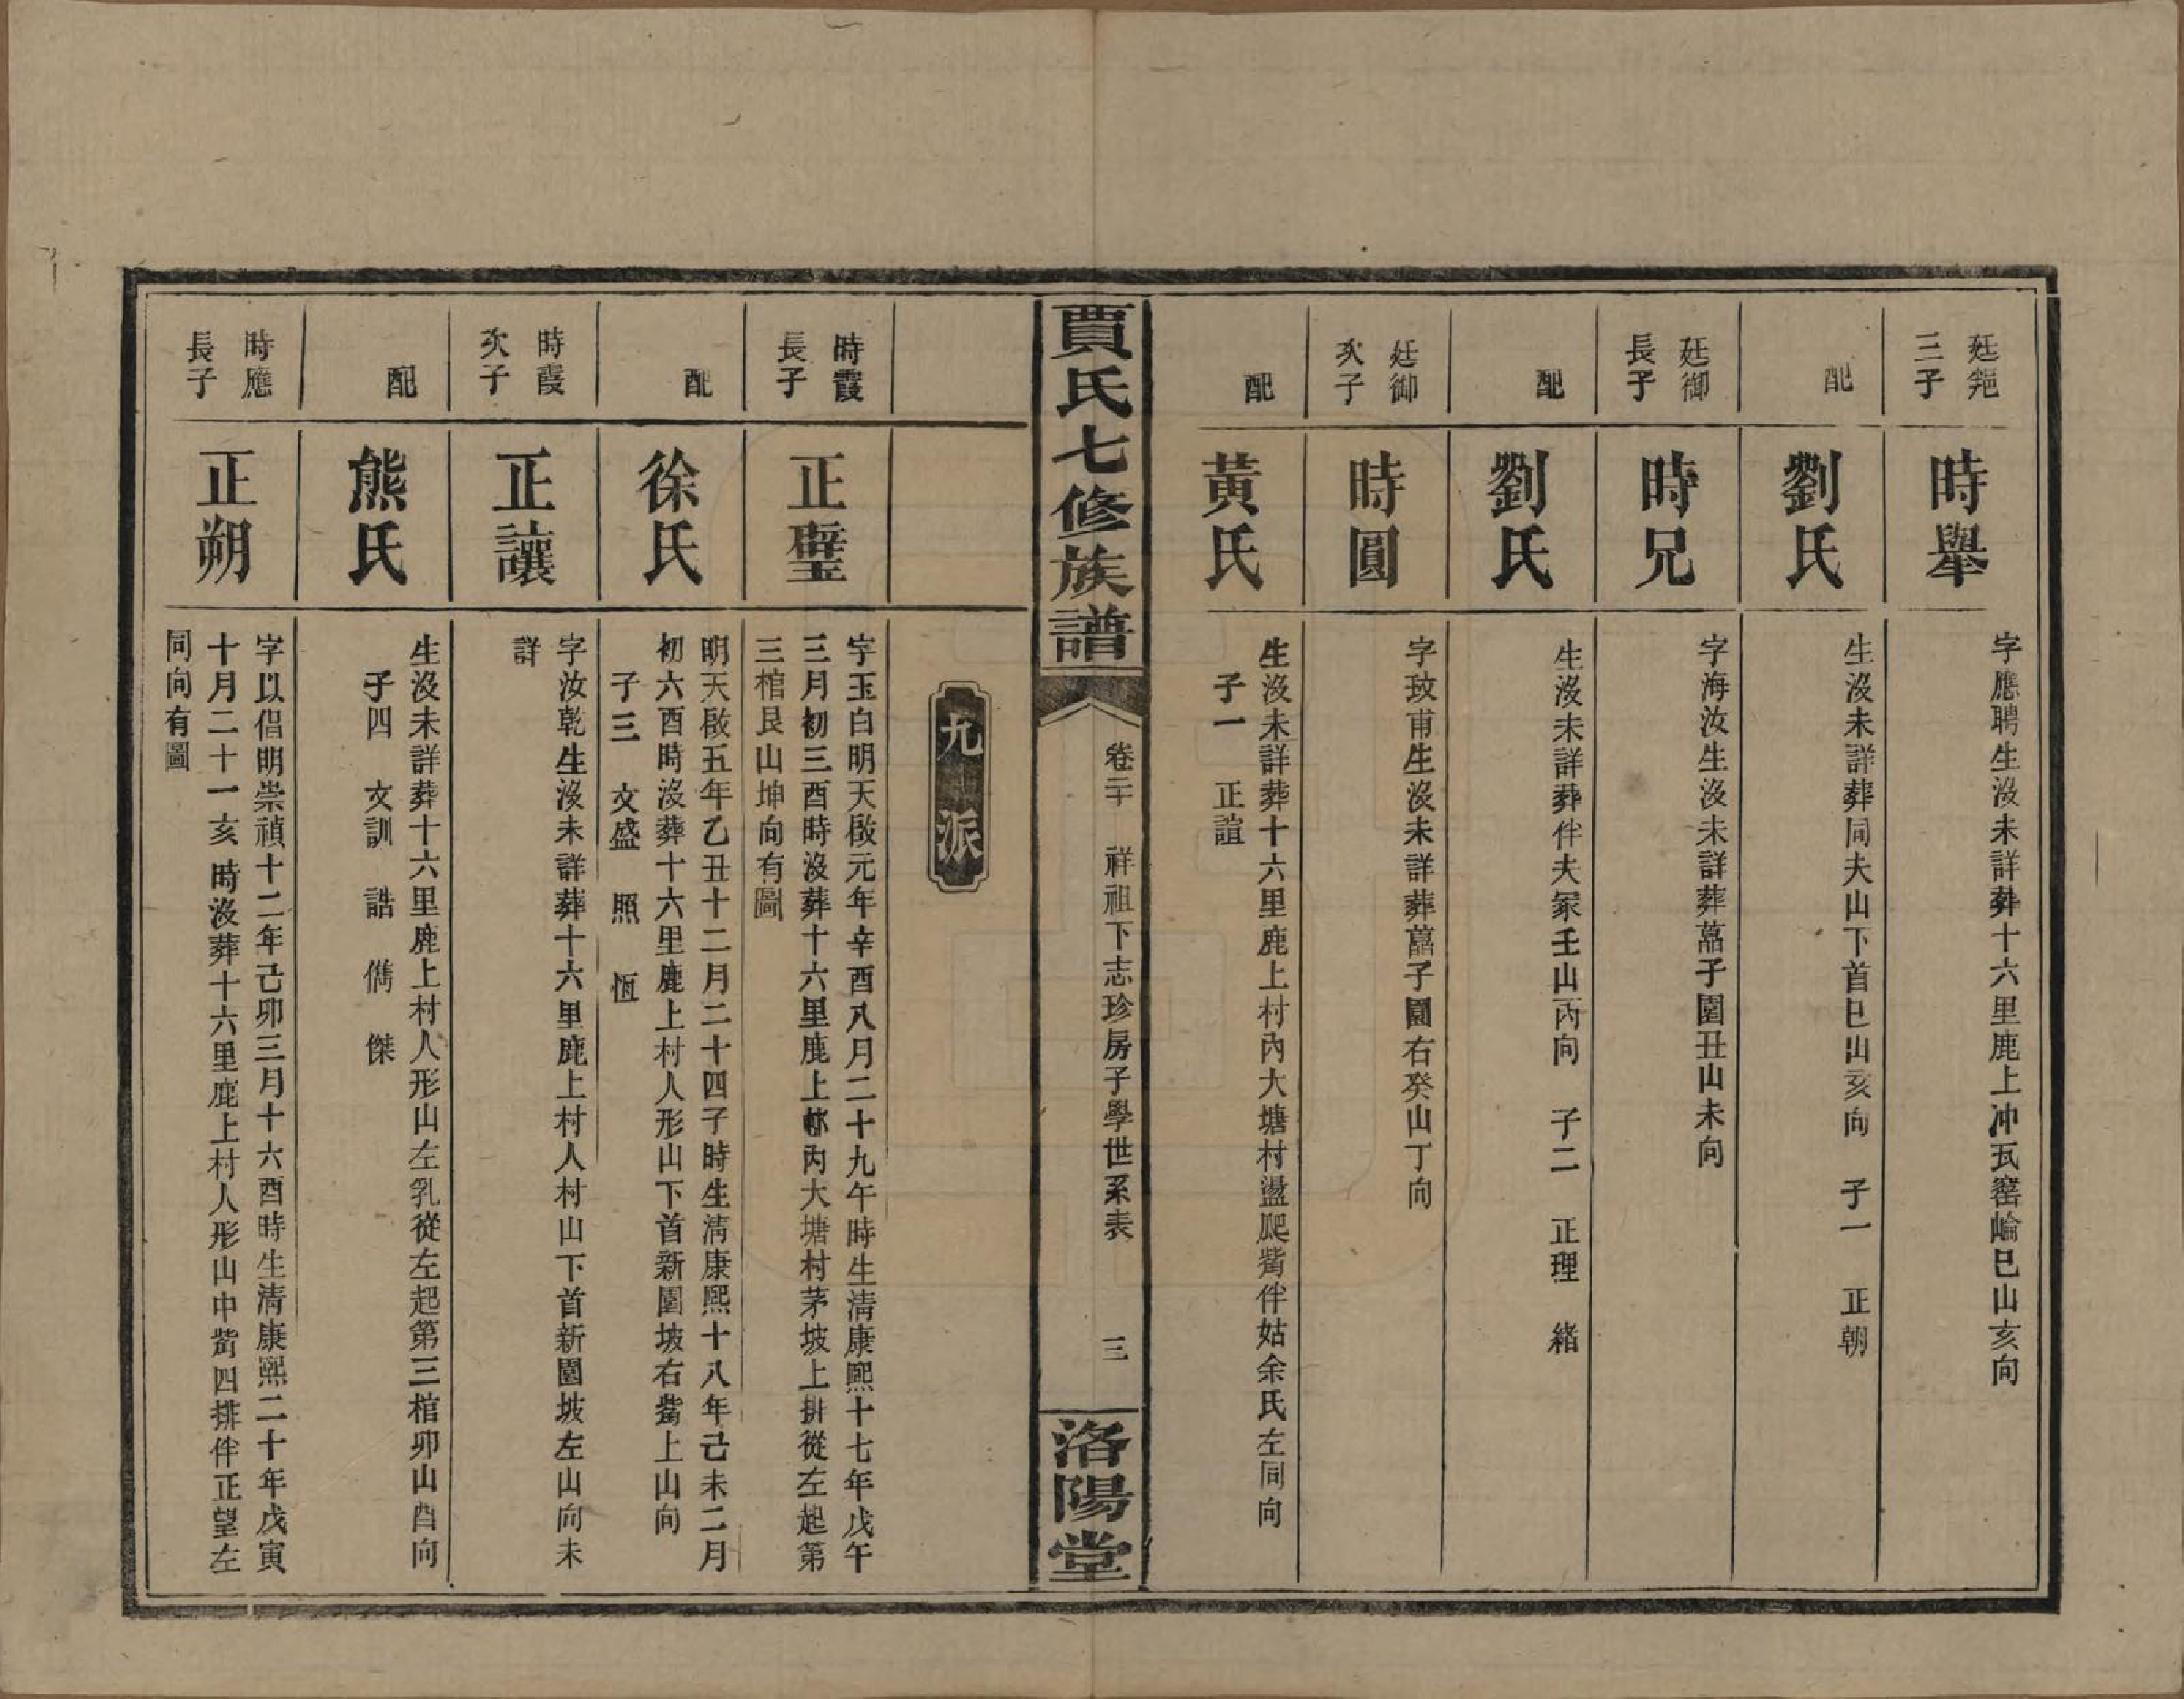 三子
時舉
字應聘生沒未詳葬十六里鹿上冲瓦窑崳巳山亥向
配
劉氏
生沒未詳葬同夫山下首巳山亥向　子一　正朝
廷御
長子
時兄
字海汝生沒未詳葬藠子園丑山未向
配
劉氏
生沒未詳葬伴夫冢壬山丙向　子二　正理　緒
廷御
次子
時圓
字玟甫生沒未詳葬藠子園右癸山丁向
配
黃氏
生沒未詳葬十六里鹿上村內大塘村盪爬觜伴姑余氏左同向
子一　正誼
賈氏七修族譜
卷二十　祥祖下志珍房子學世系表　三
洛陽堂
九派
時霞
長子
正璧
字玉白明天啟元年辛酉八月二十九午時生清康熙十七年戊午
三月初三酉時沒葬十六里鹿上村內大塘村茅坡上排從左起第
三棺艮山坤向有圖
配
徐氏
明天啟五年乙丑十二月二十四子時生清康熙十八年己未二月
初六酉時沒葬十六里鹿上村人形山下首新園坡右觜上山向
子三　文盛　照　恆
時霞
次子
正讓
字汝乾生沒未詳葬十六里鹿上村人村山下首新園坡左山向未
詳
配
熊氏
生沒未詳葬十六里鹿上村人形山左乳從左起第三棺卯山酉向
子四　文訓　誥　儁　傑
時應
長子
正朔
字以倡明崇禎十二年己卯三月十六酉時生清康熙二十年戊寅
十月二十一亥時沒葬十六里鹿上村人形山中觜四排伴正望左
同向有圖